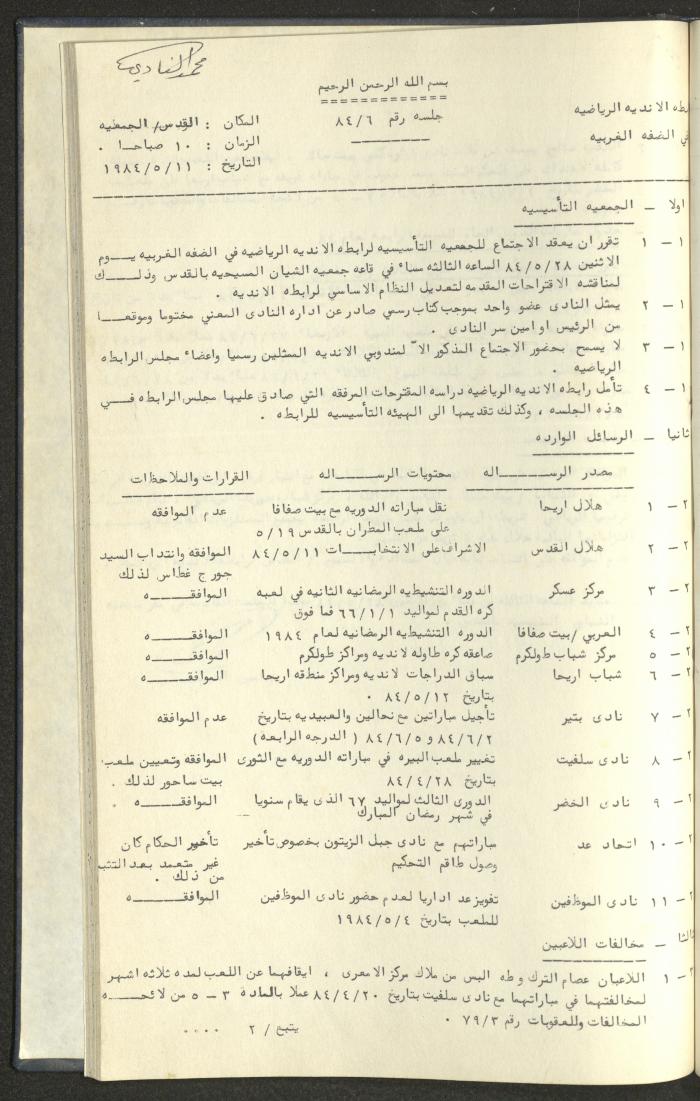 محمد النادي
بسم الله الرحمن الرحيم
رابطه الانديه الرياضيه
في الضفه الغربيه
جلسه رقم ٨٤/٦
المكان : القدس/ الجمعيه
الزمان : ١٠ صباحا .
التاريخ : ١٩٨٤/٥/١١
اولا – الجمعيه التأسيسيه
١ – ١ تقرر ان يعقد الاجتماع للجمعيه التأسيسيه لرابطه الانديه الرياضيه في الضفه الغربيه يــوم
الاثنين ٨٤/٥/٢٨ الساعه الثالثه مساء في قاعه جمعيه الشبان المسيحيه بالقدس وذلــك
لمناقشه الاقتراحات المقدمه لتعديل النظام الاساسي لرابطه الانديه .
١ – ٢ يمثل النادى عضو واحد بموجب كتاب رسمي صادر عن اداره النادى المعني مختوما وموقعــا
من الرئيس او امين سر النادى .
١ – ٣ لا يسمح بحضور الاجتماع المذكور الاّ لمندوبي الانديه الممثلين رسميا واعضاء مجلس الرابطه
الرياضيه .
١ – ٤ تأمل رابطه الانديه الرياضيه دراسه المقترحات المرفقه التي صادق عليها مجلس الرابطه فــي
هذه الجلسه ، وكذلك تقديمها الى الهيئه التأسيسيه للرابطه .
ثانيا – الرسائل الوارده
مصدر الرســـاله محتويات الرســـاله القرارات والملاحظات
٢ – ١ هلال اريحا نقل مباراته الدوريه مع بيت صفافا عدم الموافقه
على ملعب المطران بالقدس ٥/١٩
٢ – ٢ هلال القدس الاشراف على الانتخابـــات ٨٤/٥/١١ الموافقه وانتداب السيد
جورج غطاس لذلك
٢ – ٣ مركز عسكر الدوره التنشيطيه الرمضانيه الثانيه في لعبه الموافقــه
كره القدم لمواليد ٦٦/١/١ فما فوق
٢ – ٤ العربي /بيت صفافا الدوره التنشيطيه الرمضانيه لعام ١٩٨٤ الموافقــه
٢ – ٥ مركز شباب طولكرم صاعقه كره طاوله لانديه ومراكز طولكرم الموافقــه
٢ – ٦ شباب اريحا سباق الدراجات لانديه ومراكز منطقه اريحا الموافقــه
بتاريخ ٨٤/٥/١٢ .
٢ – ٧ نادى بتير تأجيل مباراتين مع نحالين والعبيديه بتاريخ عدم الموافقه
٨٤/٦/٢ و ٨٤/٦/٥ ( الدرجه الرابعه )
٢ – ٨ نادى سلفيت تغيير ملعب البيره في مباراته الدوريه مع الثورى الموافقه وتعيين ملعب
بتاريخ ٨٤/٤/٢٨ بيت ساحور لذلك .
٢ – ٩ نادى الخضر الدورى الثالث لمواليد ٦٧ الذى يقام سنويا الموافقــه .
في شهر رمضان المبارك
٢ – ١٠ اتحاد عد مباراتهم مع نادى جبل الزيتون بخصوص تأخير تأخير الحكام كان
وصول طاقم التحكيم غير متعمد بعد التثب
من ذلك .
٢ – ١١ نادى الموظفين تفويز عد اداريا لعدم حضور نادى الموظفين الموافقــه
للملعب بتاريخ ١٩٨٤/٥/٤
ثالثا – مخالفات اللاعبين
١ اللاعبان عصام الترك وطه البس من ملاك مركز الامعرى ، ايقافهما عن اللعب لمده ثلاثه اشهر
لمخالفتهما في مباراتهما مع نادى سلفيت بتاريخ ٨٤/٤/٢٠ عملا بالماده ٣ – ٥ من لائحــه
المخالفات وللعقوبات رقم ٧٩/٣ .
يتبع / ٢ ....